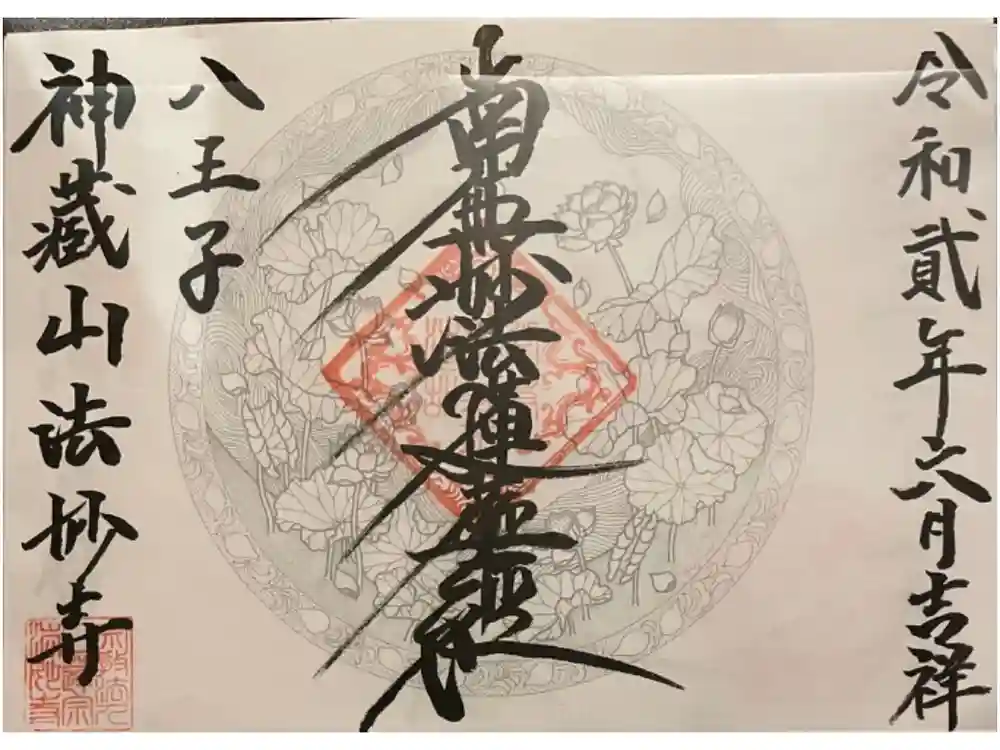 令和貳年六月吉祥
南無妙法蓮華経
八王子
神藏山法妙寺